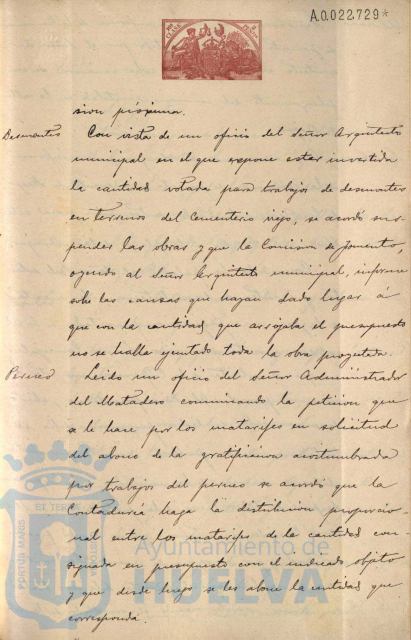 A.0.022.729*
sion próxima.
Desmontes Con vista de un oficio del Señor Arquitecto
municipal en el que expone estar invertida
la cantidad votada para trabajos de desmontes
en terrenos del Cementerio viejo, se acordó sus-
pender las obras y que la Comision de fomento,
oyendo al Señor Arquitecto municipal, informe
sobre las causas que hayan dado lugar á
que con la cantidad que arrojaba el presupuesto
no se halla ejecutado toda la obra proyectada.
Perneo Leido un oficio del Señor Administrador
del Matadero comunicando la peticion que
se le hace por los matarifes en solicitud
del abono de la gratificacion acostumbrada
por trabajos del perneo se acordó que la
Contaduria haga la distribucion proporcio-
nal entre los matarifes de la cantidad con-
signada en presupuesto con el indicado objeto
y que desde luego se les abone la cantidad que
corresponda.
Ayuntamiento de
HUELVA
PORTUS MARIS
ET TER